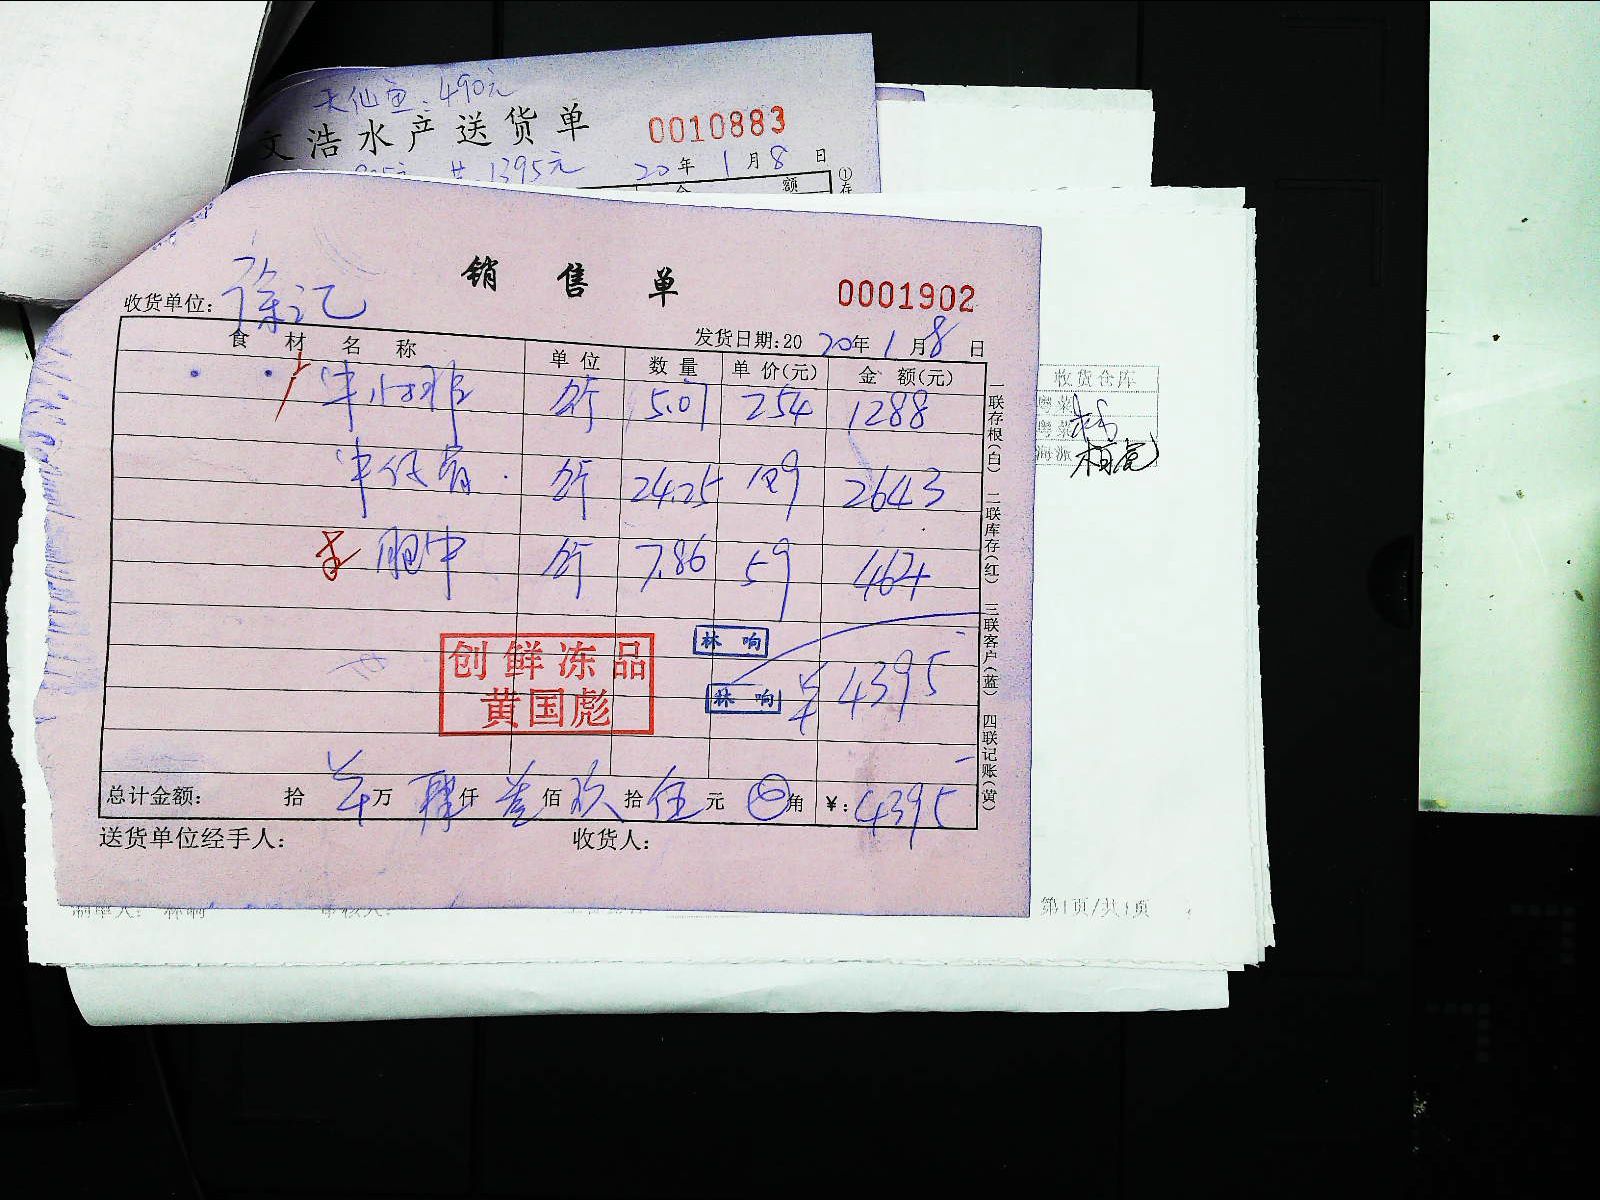 天仙鱼:490元
文浩水产送货单 0010883
共 1395元 20年1月8日
额
销售单
0001902
收货单位:徐记
发货日期:2020年1月8日
食材名称 单位 数量 单价(元) 金额(元)
牛小排 斤 5.07 254 1288
牛仔骨 斤 24.25 109 2643
斤 7.86 59 464
林响
创鲜冻品
黄国彪
林响 ¥4395
总计金额: 拾 万 肆仟 叁佰 玖拾 伍元 角 ¥:4395
送货单位经手人: 收货人:
一联存根(白) 二联库存(红) 三联客户(蓝) 四联记账(黄)
收货仓库
粤菜
粤菜
海派
制单人: 林响 审核人:
第1页/共1页